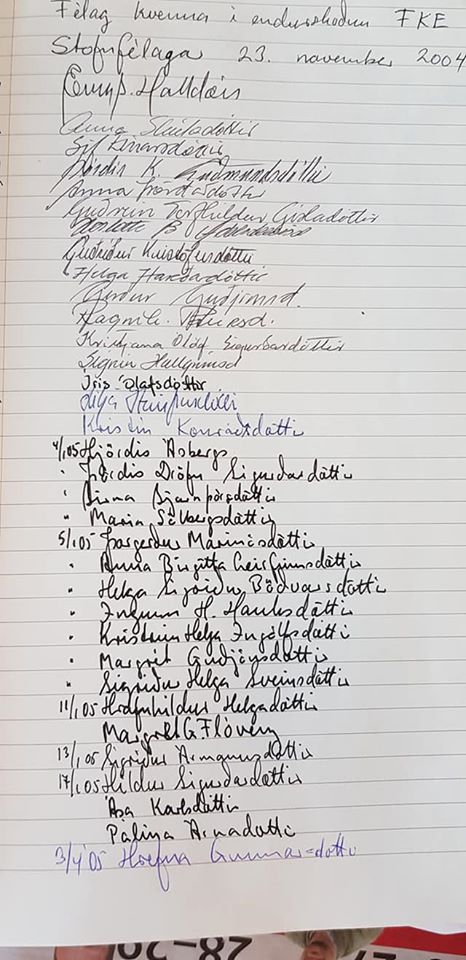 Félag kvenna í endurskoðun FKE
Stofnfélaga 23. november 2004
Halldóis
Anna Skúladóttir
Sif Einarsdóttir
Þórdís K. Guðmundsdóttir
Anna Þórðardóttir
Guðrún Torfhildur Gísladóttir
B
Guðríður Kristófersdóttir
Helga Harðardóttir
Gerður Guðjónsd.
Ragnh.
Kristjana Ólöf Sigurðardóttir
Sigrún Hallgrímsd
Íris Ólafsdóttir
Lilja Steinþórsdóttir
Kristín Konráðsdóttir
4/1 05 Hjördís Ásberg
" Þórdís Dröfn Sigurðardóttir
" Birna Bjarnþórsdóttir
" María Sólbergsdóttir
5/1 05 Þorgerður Marinósdóttir
" Anna Birgitta Geirfinnsdóttir
" Helga Sigríður Böðvarsdóttir
" Ingunn H. Hauksdóttir
" Kristrún Helga Ingólfsdóttir
" Margrét Guðjónsdóttir
" Sigríður Helga Sveinsdóttir
11/1 05 Hrafnhildur Helgadóttir
Margrét G Flóvenz
13/1 05 Sigríður Ármannsdóttir
17/1 05 Hildur Sigurðardóttir
Ása Karlsdóttir
Pálína Árnadóttir
3/4 '05 Hrefna Gunnarsdóttir
28-29